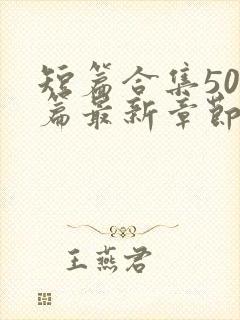 短篇合集50
篇最新章节
王燕君